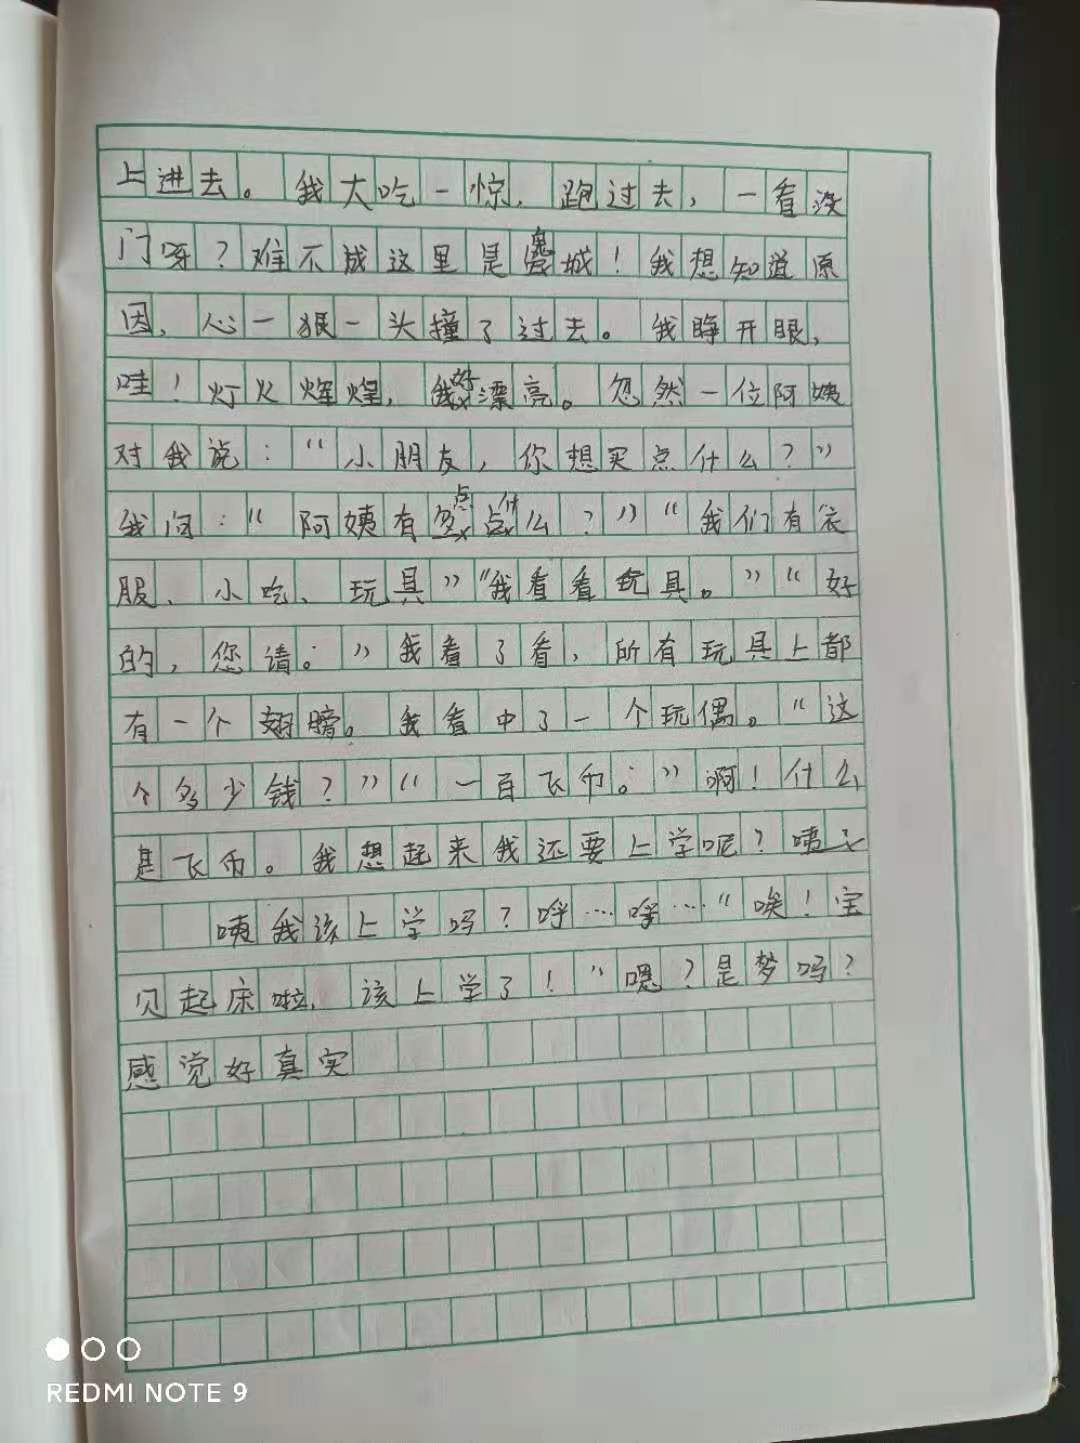 上进去。我大吃一惊，跑过去，一看没
门呀？难不成这里是鬼城！我想知道原
因，心一狠一头撞了过去。我睁开眼，
哇！灯火辉煌，好漂亮。忽然一位阿姨
对我说：“小朋友，你想买点什么？”
我问：“阿姨有点什么？”“我们有衣
服、小吃、玩具”“我看看玩具。”“好
的，您请。”我看了看，所有玩具上都
有一个翅膀。我看中了一个玩偶。“这
个多少钱？”“一百飞币。”啊！什么
是飞币。我想起来我还要上学呢？咦
咦我该上学吗？呼……呼……“唉！宝
贝起床啦，该上学了！”嗯？是梦吗？
感觉好真实
REDMI NOTE 9